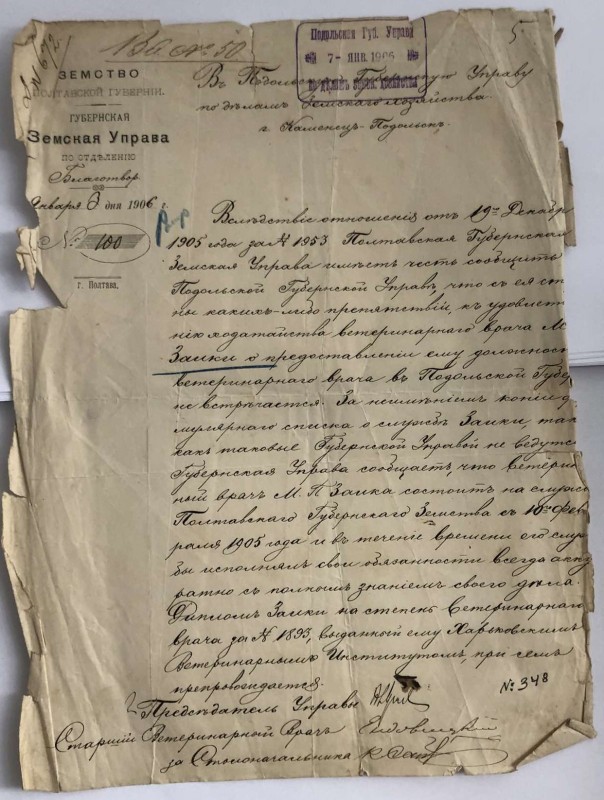 Вх. № 50
5
Подольская Губ. Управа
7- ЯНВ. 1906
по дѣламъ земск. хозяйства
ЗЕМСТВО
ПОЛТАВСКОЙ ГУБЕРНІИ.
ГУБЕРНСКАЯ
Земская Управа
ПО ОТДѢЛЕНІЮ
Благотвор
Января 3 дня 1906 г.
№ 100
г. Полтава.
Въ Подольскую Губернскую Управу
по дѣламъ Земскаго хозяйства
г. Каменецъ-Подольскъ.
Вслѣдствіе отношенія отъ 19го Декабр
1905 года за № 1953 Полтавская Губернская
Земская Управа имѣетъ честь сообщить
Подольской Губернской Управѣ, что съ ея сто
ны какихъ-либо препятствій, къ удовлет
нію ходатайства ветеринарнаго врача М.
Заики о предоставленіи ему должнос
ветеринарнаго врача въ Подольской Губе
не встрѣчается. За неимѣніемъ копіи ф
мулярнаго списка о службѣ Заики, так
какъ таковые Губернской Управой не ведутся
Губернская Управа сообщаетъ, что ветерин
ный врачъ М. П. Заика состоитъ на служб
Полтавскаго Губернскаго Земства съ 10го Фев
раля 1905 года и въ теченіе времени его слу
бы исполнялъ свои обязанности всегда акку
ратно съ полнымъ знаніемъ своего дѣла.
Дипломъ Заики на степень Ветеринарнаго
врача за № 1893, выданный ему Харьковскимъ
Ветеринарнымъ Институтомъ, при семъ
препровождается.
№ 348
Предсѣдатель Управы
Старшій Ветеринарный Врачъ
за Столоначальника